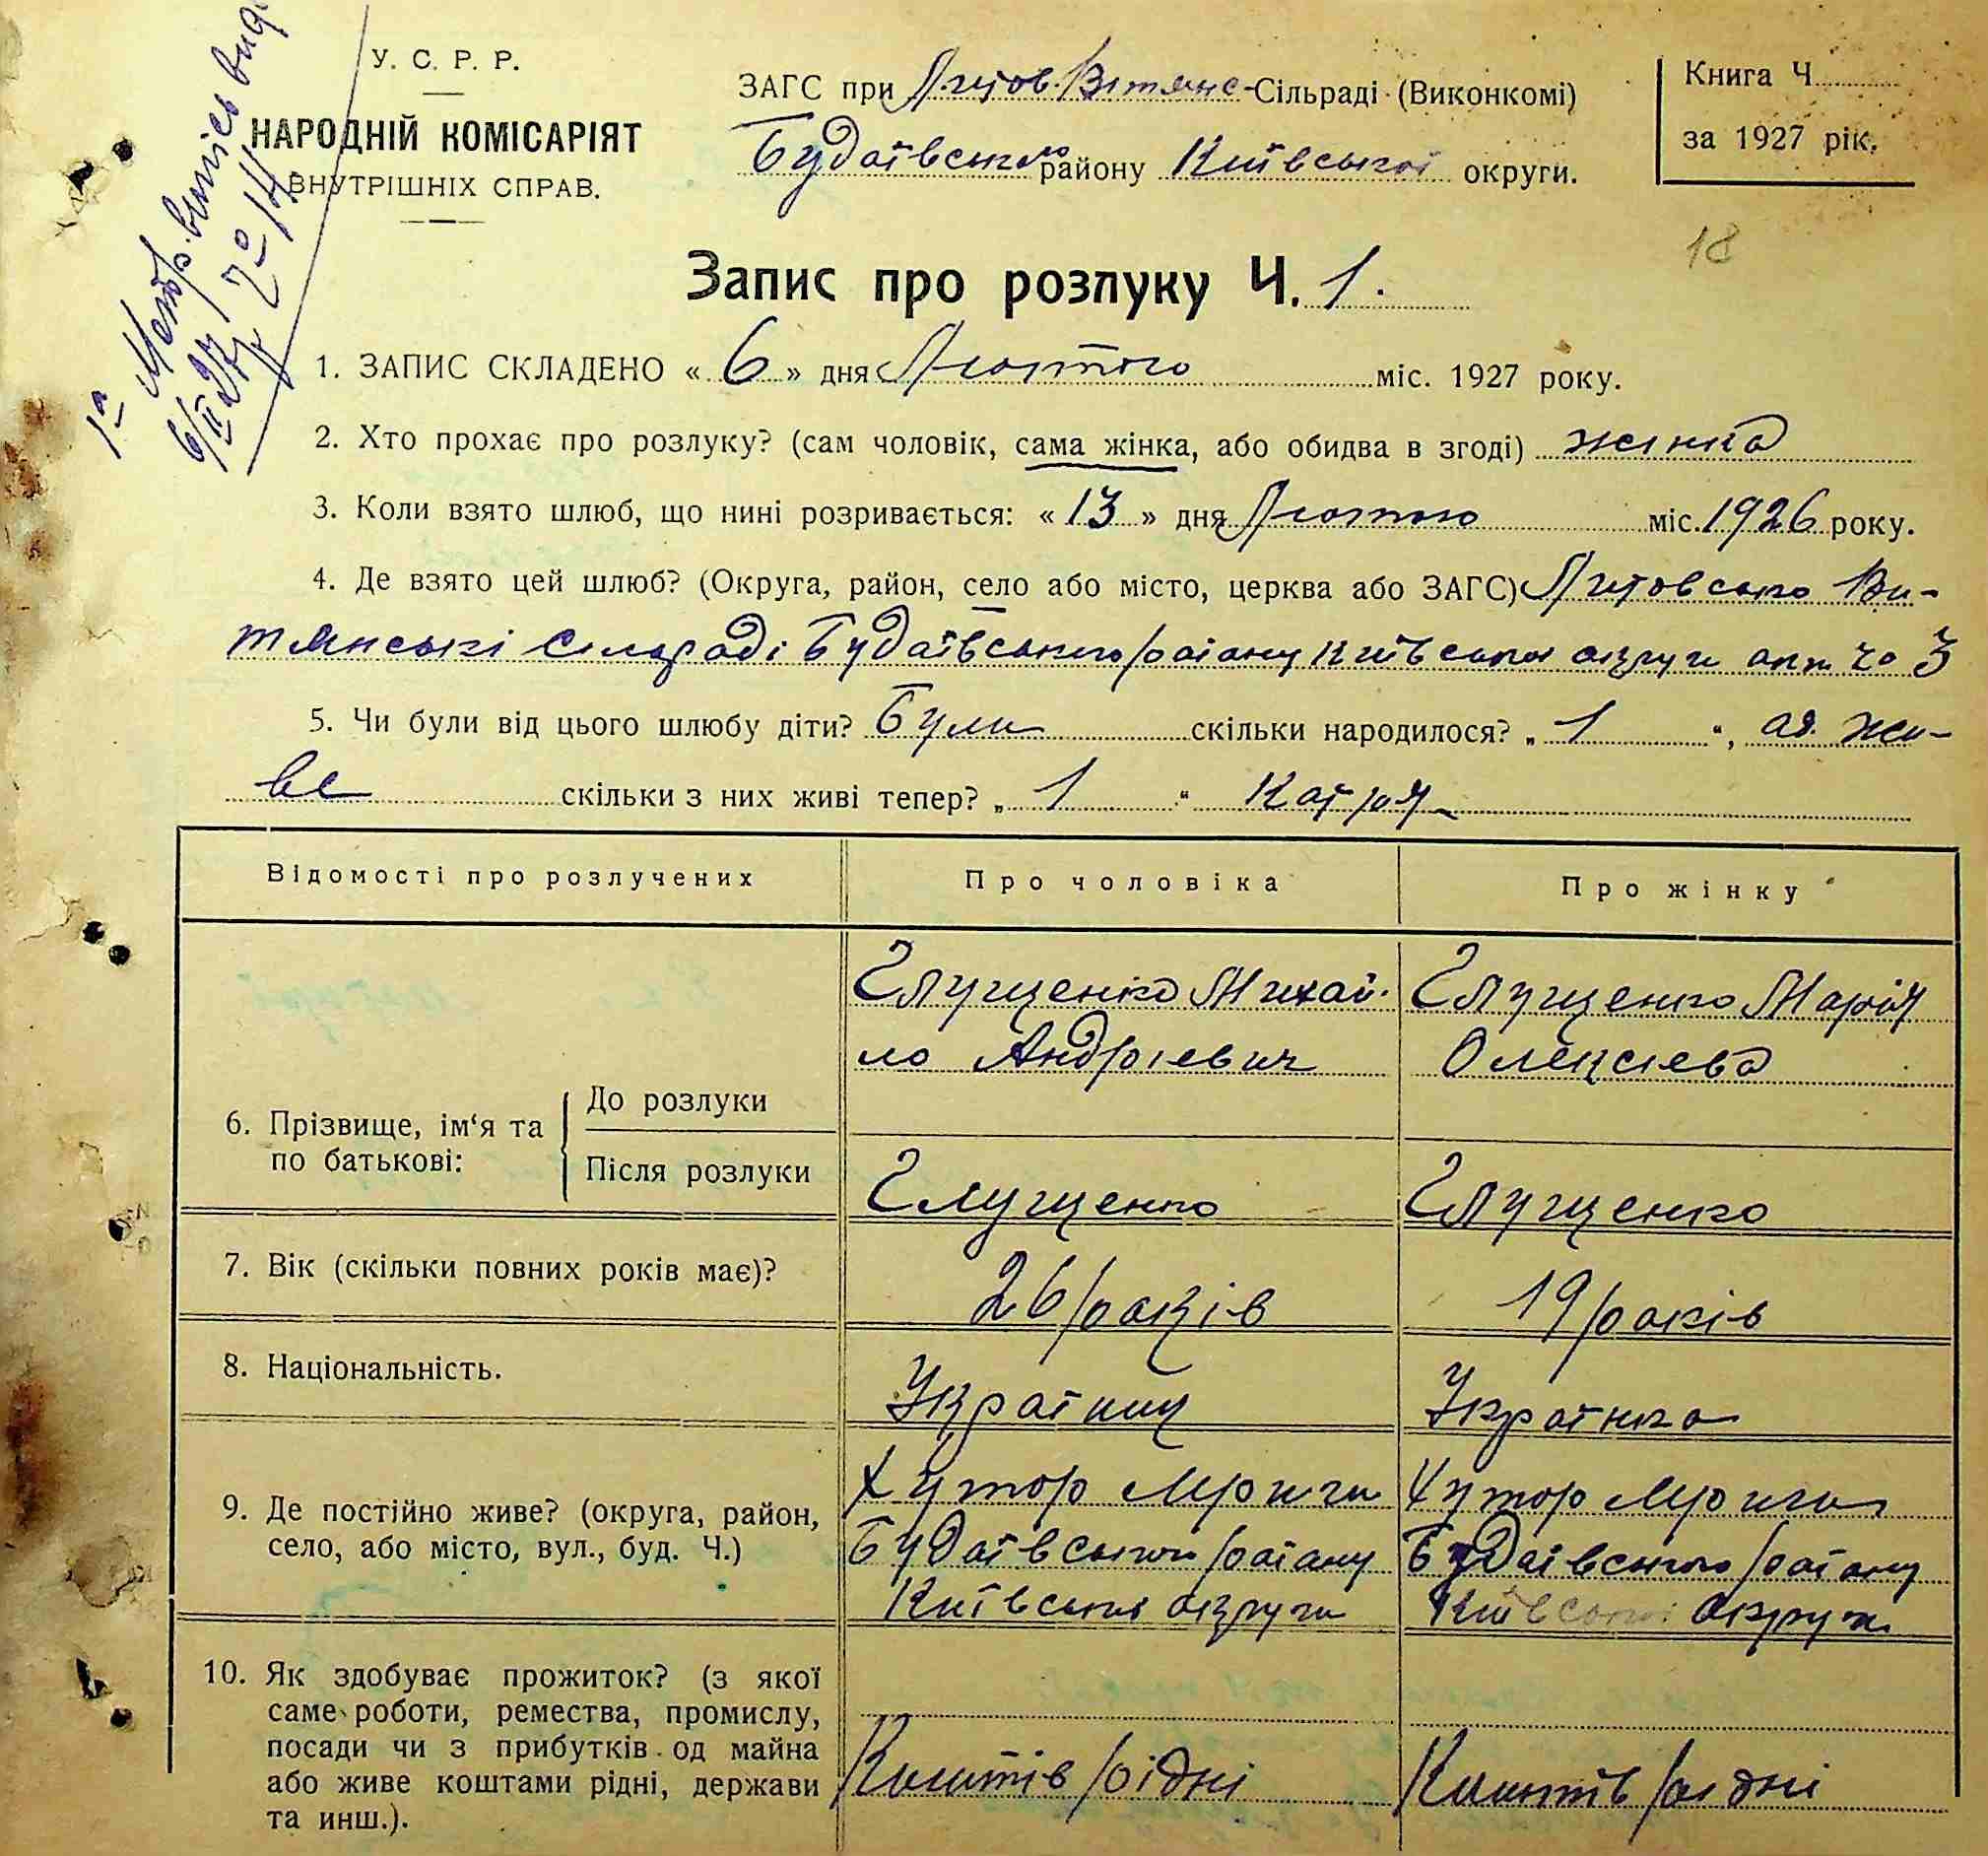 У. С. Р. Р.
НАРОДНІЙ КОМІСАРІЯТ
ВНУТРІШНІХ СПРАВ.
1а Метр. випись вид
6/II 27 р. № 14
ЗАГС при Літов. Вітянс-Сільраді (Виконкомі)
Будаївського району Київської округи.
Книга Ч.
за 1927 рік.
18
Запис про розлуку Ч. 1.
1. ЗАПИС СКЛАДЕНО « 6 » дня Лютого міс. 1927 року.
2. Хто прохає про розлуку? (сам чоловік, сама жінка, або обидва в згоді) жінка
3. Коли взято шлюб, що нині розривається: « 13 » дня Лютого міс. 1926 року.
4. Де взято цей шлюб? (Округа, район, село або місто, церква або ЗАГС) Литовсько Ви-
тянські Сільраді Будаївського району Київської округи акт ч° 3
5. Чи були від цього шлюбу діти? Були скільки народилося? „ 1 “, од. жи-
ве скільки з них живі тепер? „ 1 “ Катря
Відомості про розлучених
Про чоловіка
Про жінку
6. Прізвище, ім‘я та
по батькові:
До розлуки
Після розлуки
Глущенко Михай-
ло Андрієвич
Глущенко Марія
Олексієва
Глущенко
Глущенко
7. Вік (скільки повних років має)?
26 років
19 років
8. Національність.
Українц
Українка
9. Де постійно живе? (округа, район,
село, або місто, вул., буд. Ч.)
Хутор Мриги
Будаївського району
Київської округи
Хутор Мриги
Будаївського району
Київської округи
10. Як здобуває прожиток? (з якої
саме роботи, ремества, промислу,
посади чи з прибутків од майна
або живе коштами рідні, держави
та инш.).
Коштів рідні
Коштів рідні